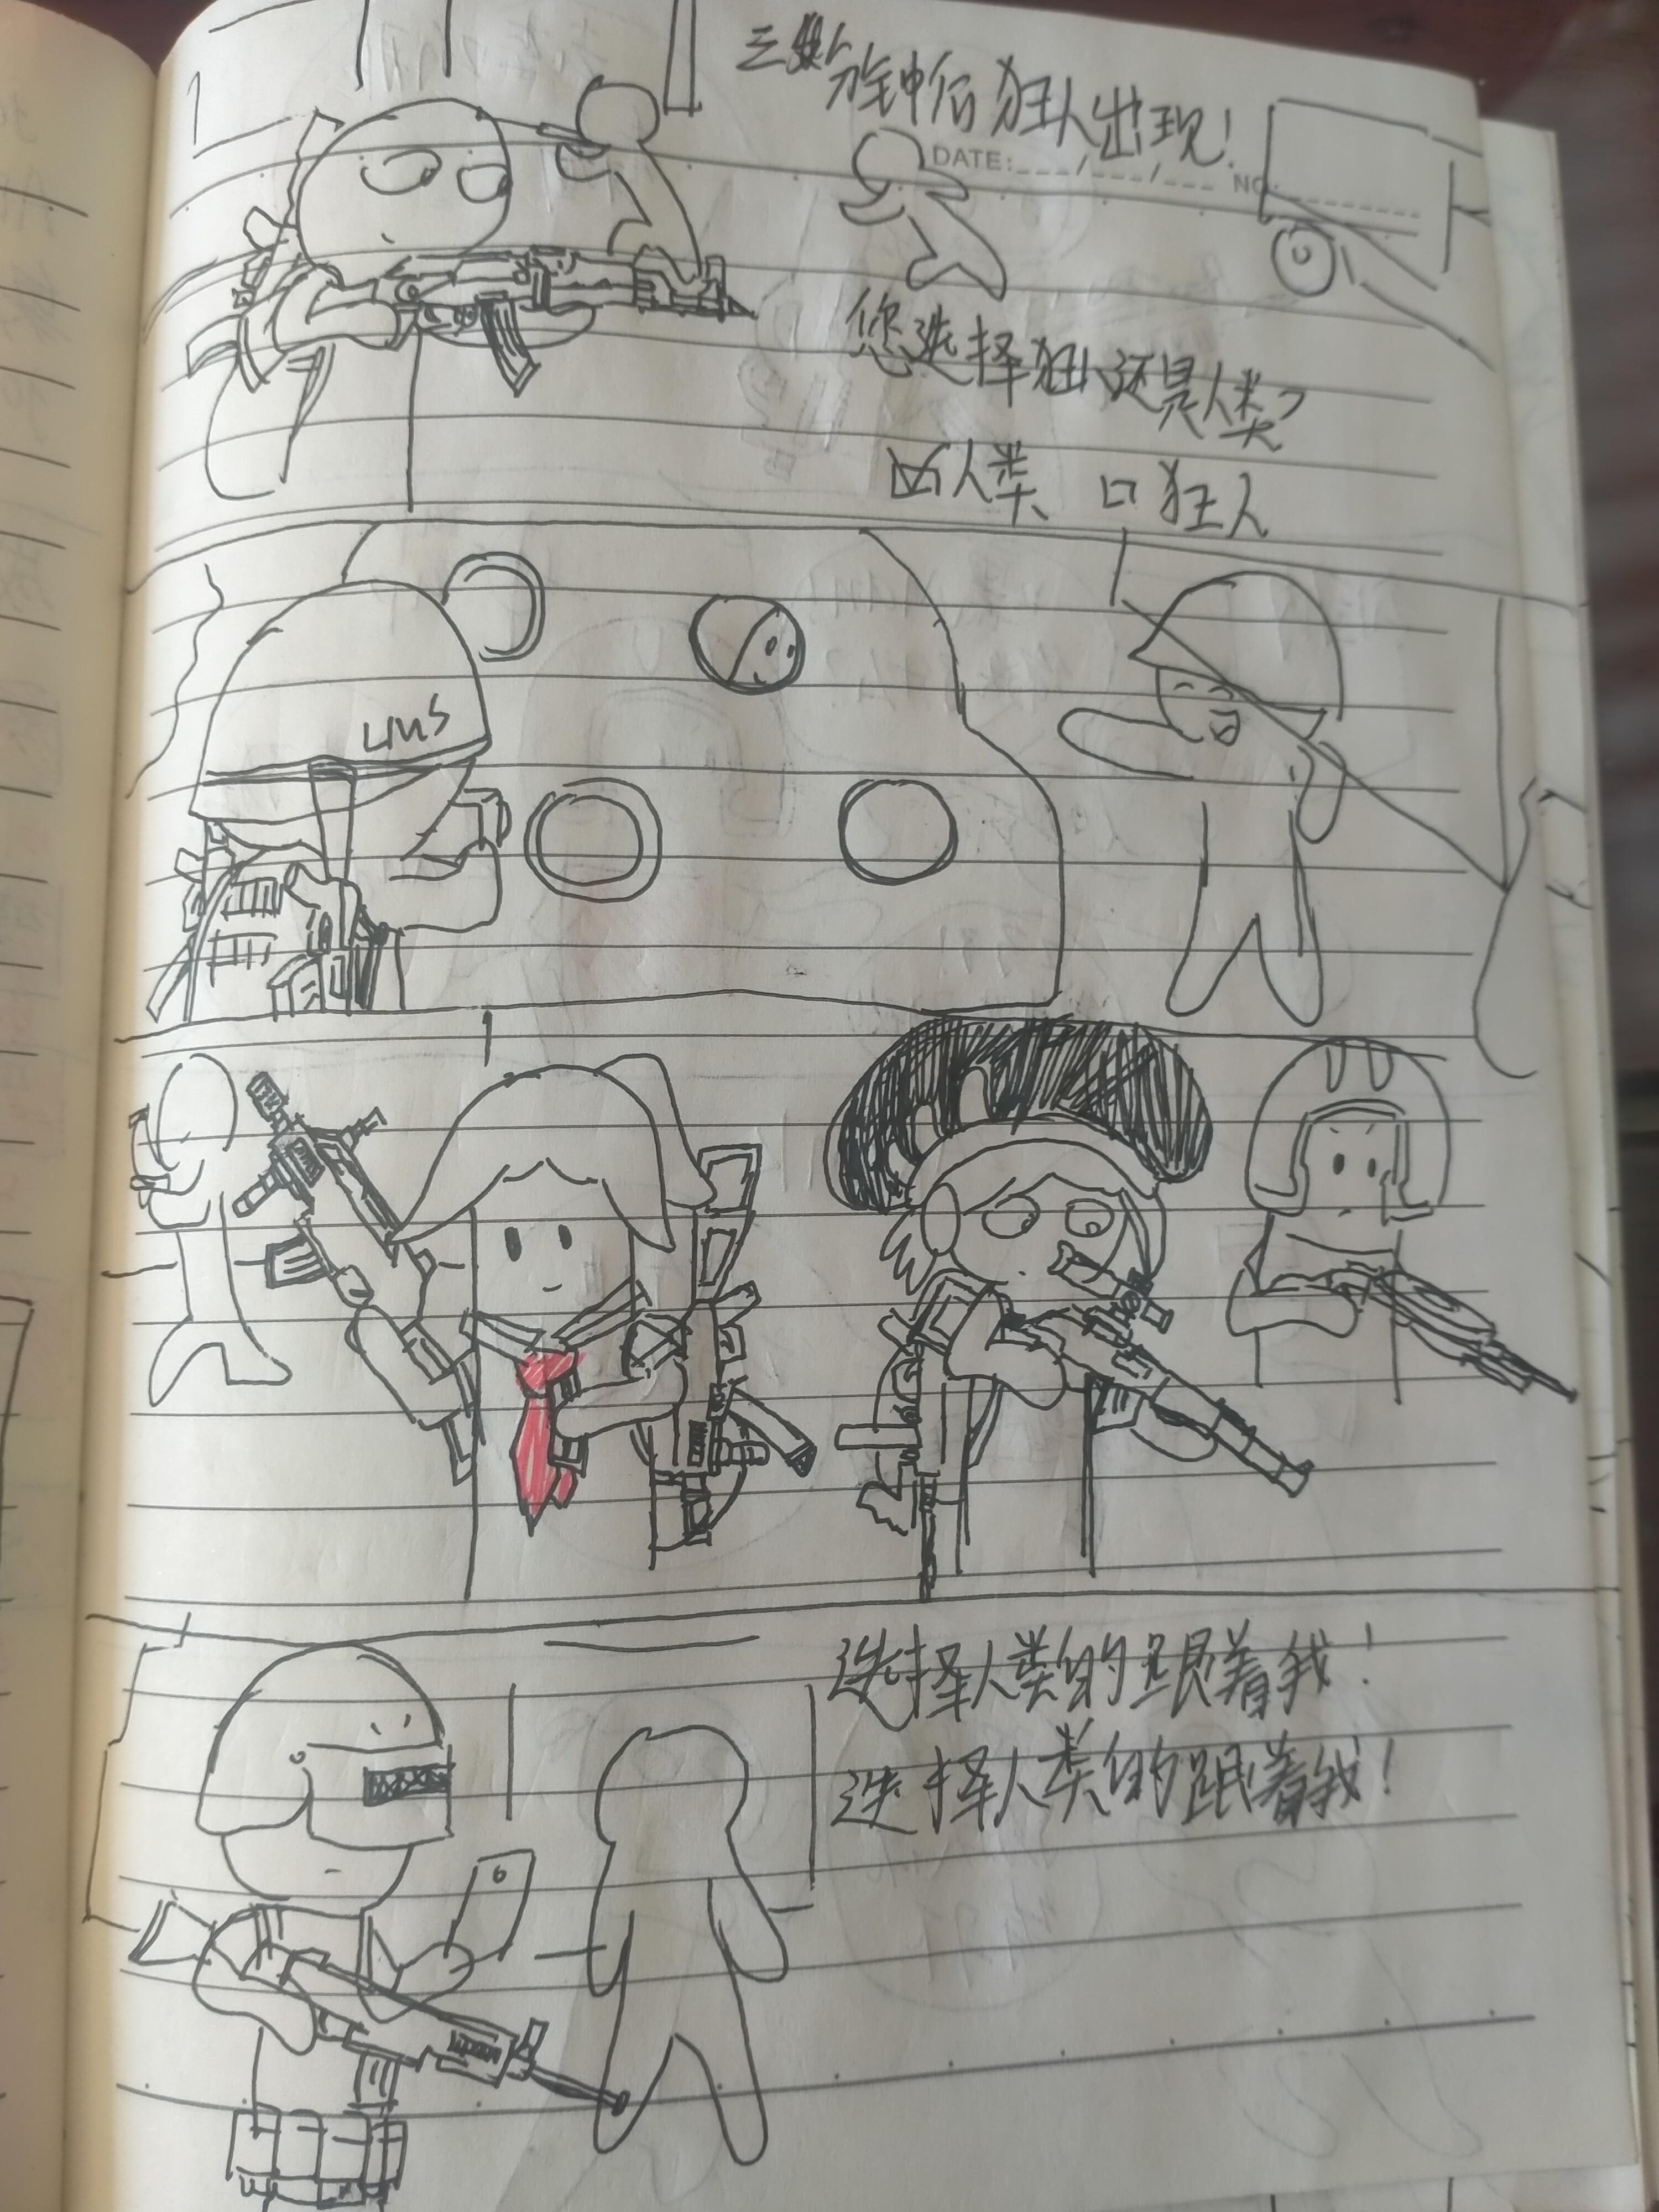 三 分钟后狂人出现!
DATE: ___/___/___ NO.
您选择狂人还是人类?
☑人类 □狂人
LMS
选择人类的跟着我!
选择人类的跟着我!